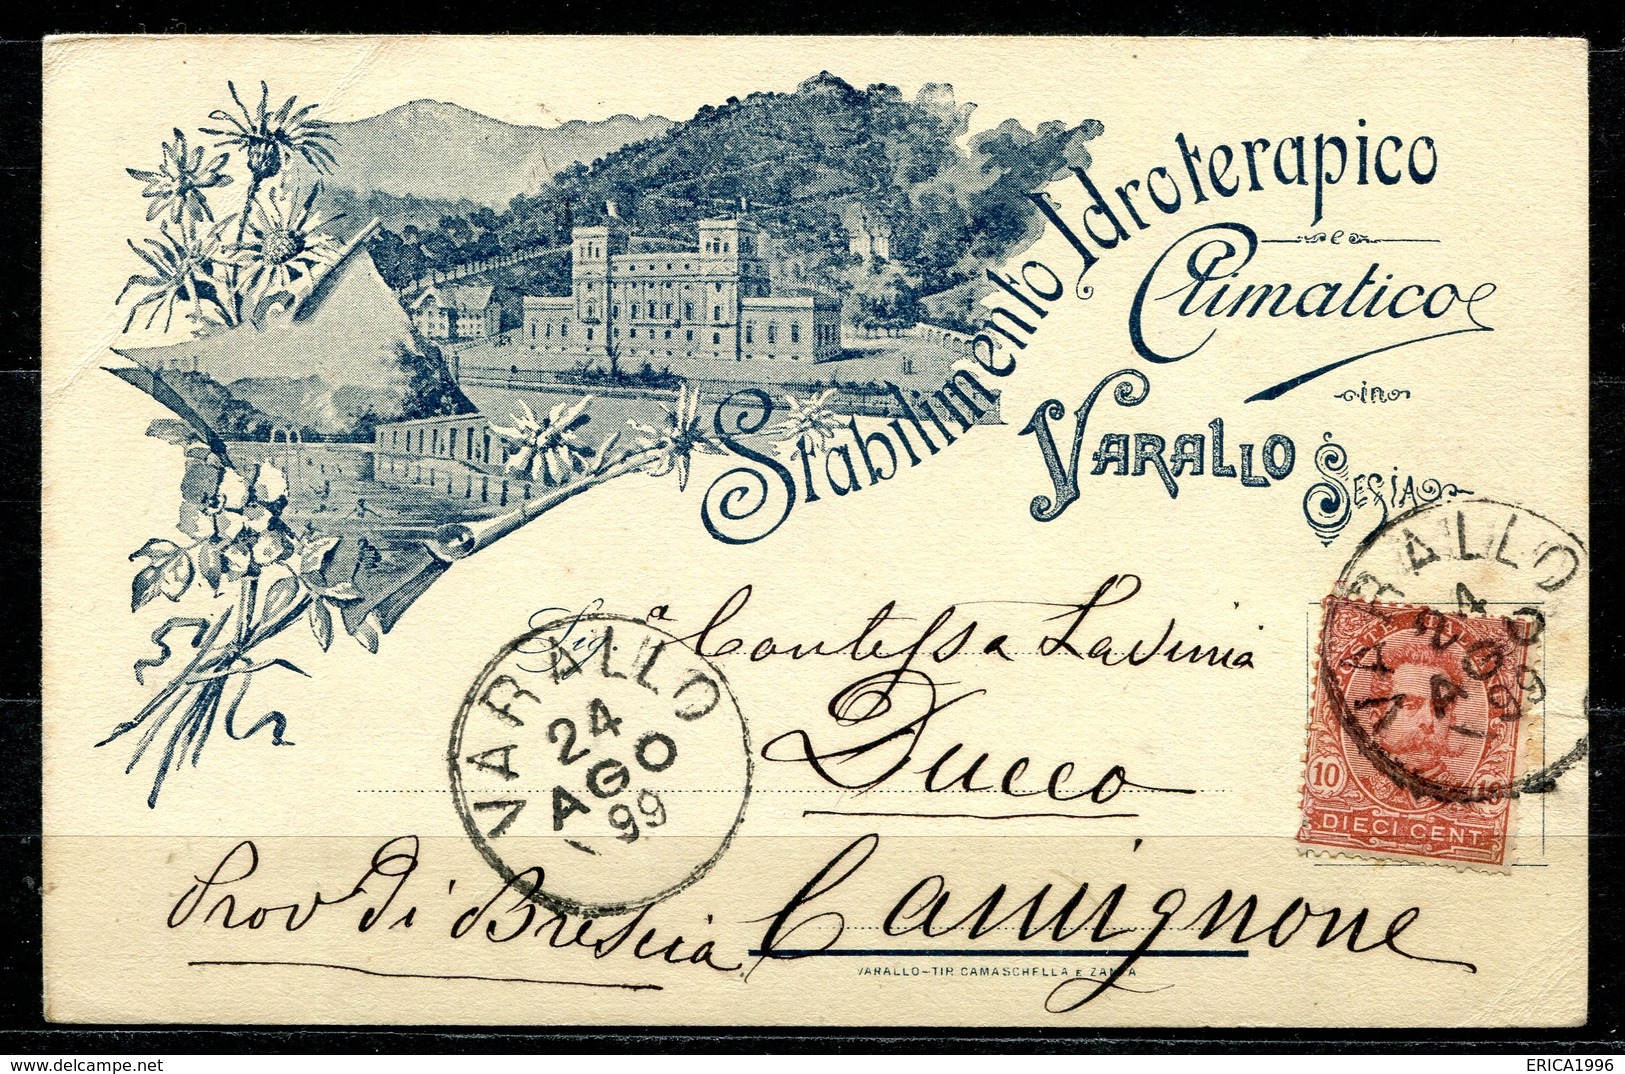 Stabilimento Idroterapico
e
Climatico
in
VARALLO SESIA
VARALLO
24
AGO
99
Sig.a Contessa Lavinia
Ducco
Prov di Brescia Camignone
VARALLO
24
AGO
99
10 10
DIECI CENT.
VARALLO-TIP. CAMASCHELLA E ZANFA
ERICA1996